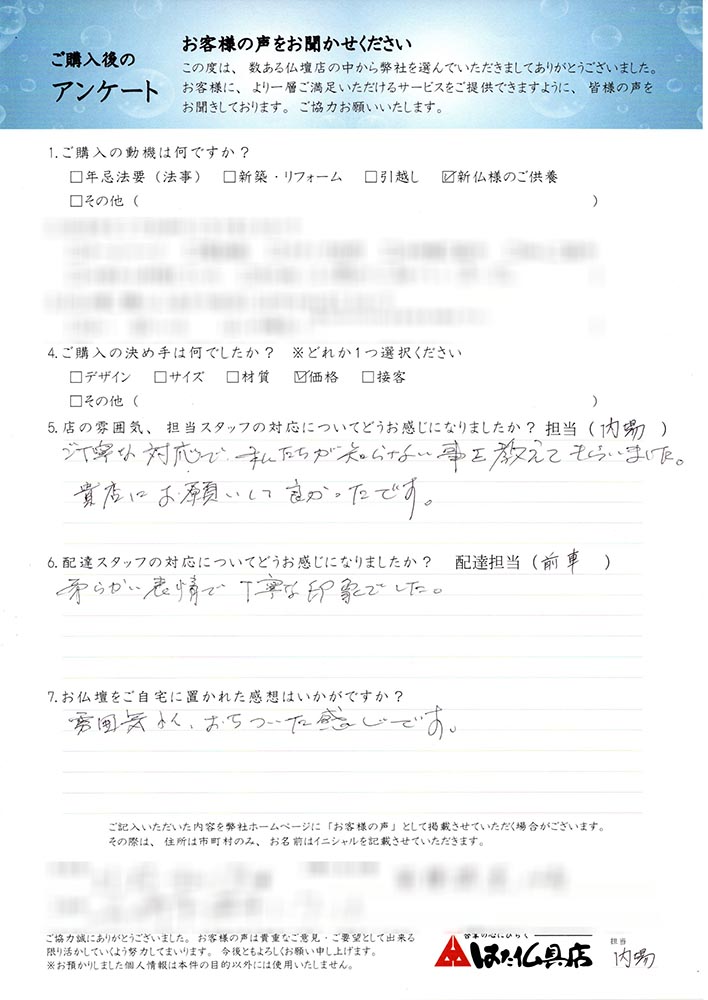 ご購入後の
アンケート
お客様の声をお聞かせください
この度は、数ある仏壇店の中から弊社を選んでいただきましてありがとうございました。
お客様に、より一層ご満足いただけるサービスをご提供できますように、皆様の声を
お聞きしております。ご協力お願いいたします。
1.ご購入の動機は何ですか?
□年忌法要(法事) □新築・リフォーム □引越し ☑新仏様のご供養
□その他( )
4.ご購入の決め手は何でしたか? ※どれか1つ選択ください
□デザイン □サイズ □材質 ☑価格 □接客
□その他( )
5.店の雰囲気、担当スタッフの対応についてどうお感じになりましたか? 担当(内場)
ご丁寧な対応で、私たちが知らない事を教えてもらいました。
貴店にお願いして良かったです。
6.配達スタッフの対応についてどうお感じになりましたか? 配達担当(前車)
柔らかい表情で丁寧な印象でした。
7.お仏壇をご自宅に置かれた感想はいかがですか?
雰囲気よく、おちついた感じです。
ご記入いただいた内容を弊社ホームページに「お客様の声」として掲載させていただく場合がございます。
その際は、住所は市町村のみ、お名前はイニシャルを記載させていただきます。
ご協力誠にありがとうございました。お客様の声は貴重なご意見・ご要望として出来る
限り活かしていくよう努力してまいります。今後ともよろしくお願い申し上げます。
※お預かりしました個人情報は本件の目的以外には使用いたしません。
はた仏具店
担当
内場